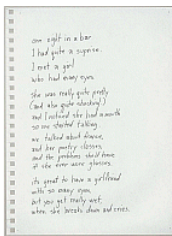 one night in a bar
I had quite a suprise.
I met a girl
who had many eyes.
she was really quite pretty
(and also quite shocking!)
and I noticed she had a mouth
so we started talking.
we talked about
and her poetry classes,
and the problems she'd have
if she ever wore glasses.
its great to have a girlfriend
with so many eyes,
but you get really wet
when she breaks down and cries.